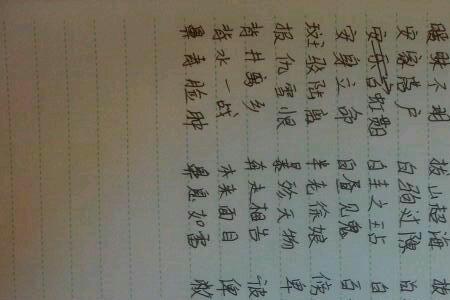 暧昧不明 拔山超海
安家落户 白驹过隙 白
白圭之玷 白
安身立命 白昼见鬼 百
班驳陆离 半老徐娘 傍
报仇雪恨 暴殄天物 卑
背井离乡 奔走相告
背水一战 本来面目 俾
鼻青脸肿 鼻息如雷